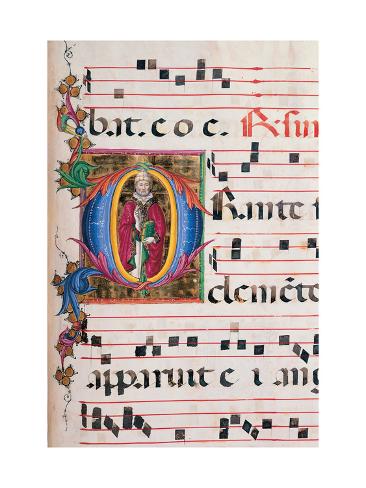 bat. c o c. R.
ORante
clemēte
apparuit e i ang